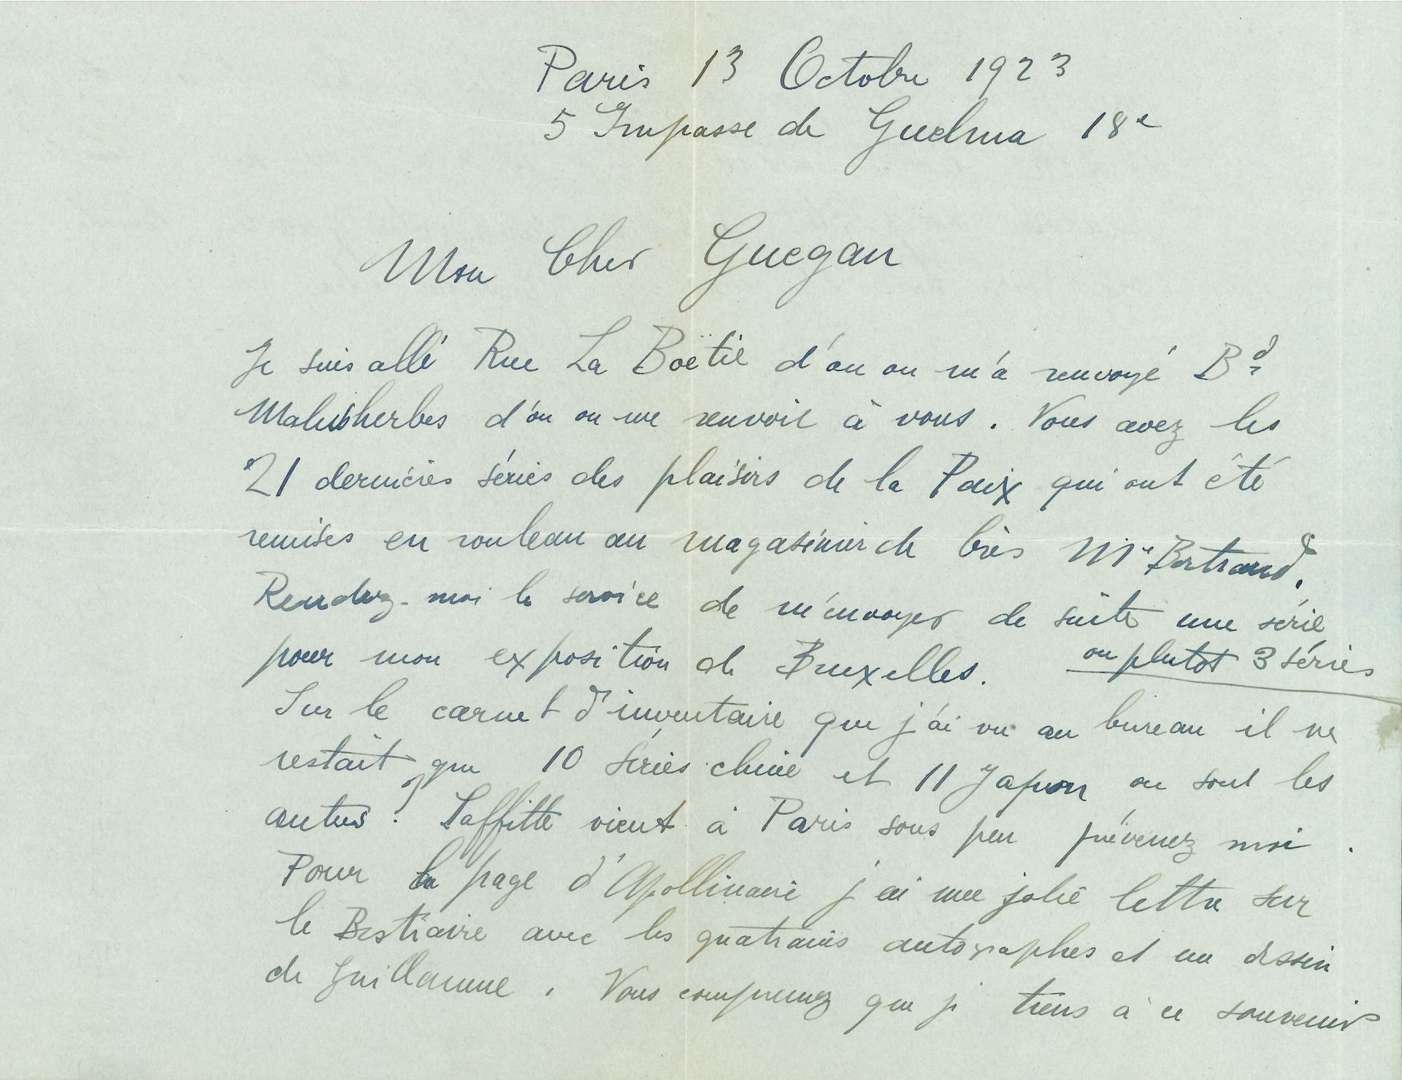 Paris 13 Octobre 1923
5 Impasse de Guelma 18e
Mon Cher Guegan
Je suis allé Rue La Boëtie d'ou on m'a renvoyé Bd
Malesherbes d'ou on me renvoie à vous. Vous avez les
21 dernières séries des plaisirs de la Paix qui ont été
remises en rouleau au magasinier de brès Mr Bertrand.
Rendez-moi le service de m'envoyer de suite une série
pour mon exposition de Bruxelles. ou plutot 3 séries
Sur le carnet d'inventaire que j'ai vu au bureau il ne
restait que 10 séries chine et 11 Japon ou sont les
autres? Laffitte vient à Paris sous peu prévenez moi.
Pour la page d'Apollinaire j'ai une jolie lettre sur
le Bestiaire avec les quatrains autographes et un dessin
de Guillaume. Vous comprenez que je tiens à ce souvenir